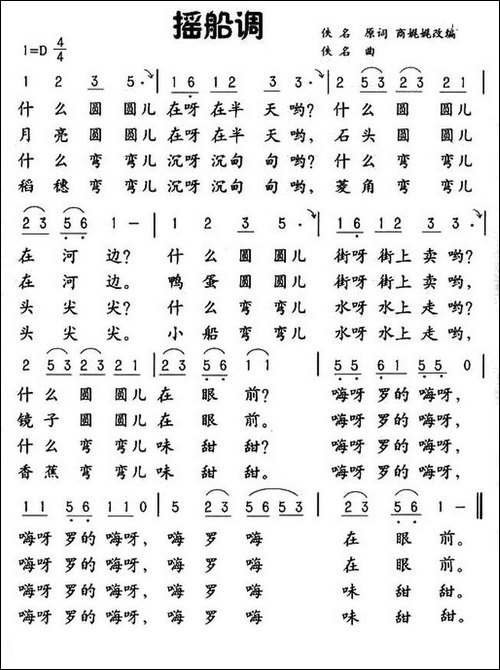 摇船调
佚名 原词 商娓娓改编
1=D 4/4
佚名 曲
1 2 3 5· | 1 6 1 2 3 3· | 1 2 5 3 2 3 2 1 |
什么圆圆儿 在呀在半天哟? 什么圆圆儿
月亮圆圆儿 在呀在半天哟, 石头圆圆儿
什么弯弯儿 沉呀沉甸甸哟? 什么弯弯儿
稻穗弯弯儿 沉呀沉甸甸哟, 菱角弯弯儿
2 3 5 6 1 - | 1 2 3 5· | 1 6 1 2 3 3· |
在河边? 什么圆圆儿 街呀街上卖哟?
在河边。 鸭蛋圆圆儿 街呀街上卖哟,
头尖尖? 什么弯弯儿 水呀水上走哟?
头尖尖。 小船弯弯儿 水呀水上走哟,
2 5 3 2 3 2 1 | 2 3 5 6 1 - | 5 5 6 1 5 5 0 |
什么圆圆儿 在眼前? 嗨呀罗的嗨呀,
镜子圆圆儿 在眼前。 嗨呀罗的嗨呀,
什么弯弯儿 味甜甜? 嗨呀罗的嗨呀,
香蕉弯弯儿 味甜甜。 嗨呀罗的嗨呀,
1 1 5 6 1 1 0 | 5 2 3 5 6 5 3 | 2 3 5 6 1 - ‖
嗨呀罗的嗨呀, 嗨罗嗨 在眼前。
嗨呀罗的嗨呀, 嗨罗嗨 在眼前。
嗨呀罗的嗨呀, 嗨罗嗨 味甜甜。
嗨呀罗的嗨呀, 嗨罗嗨 味甜甜。